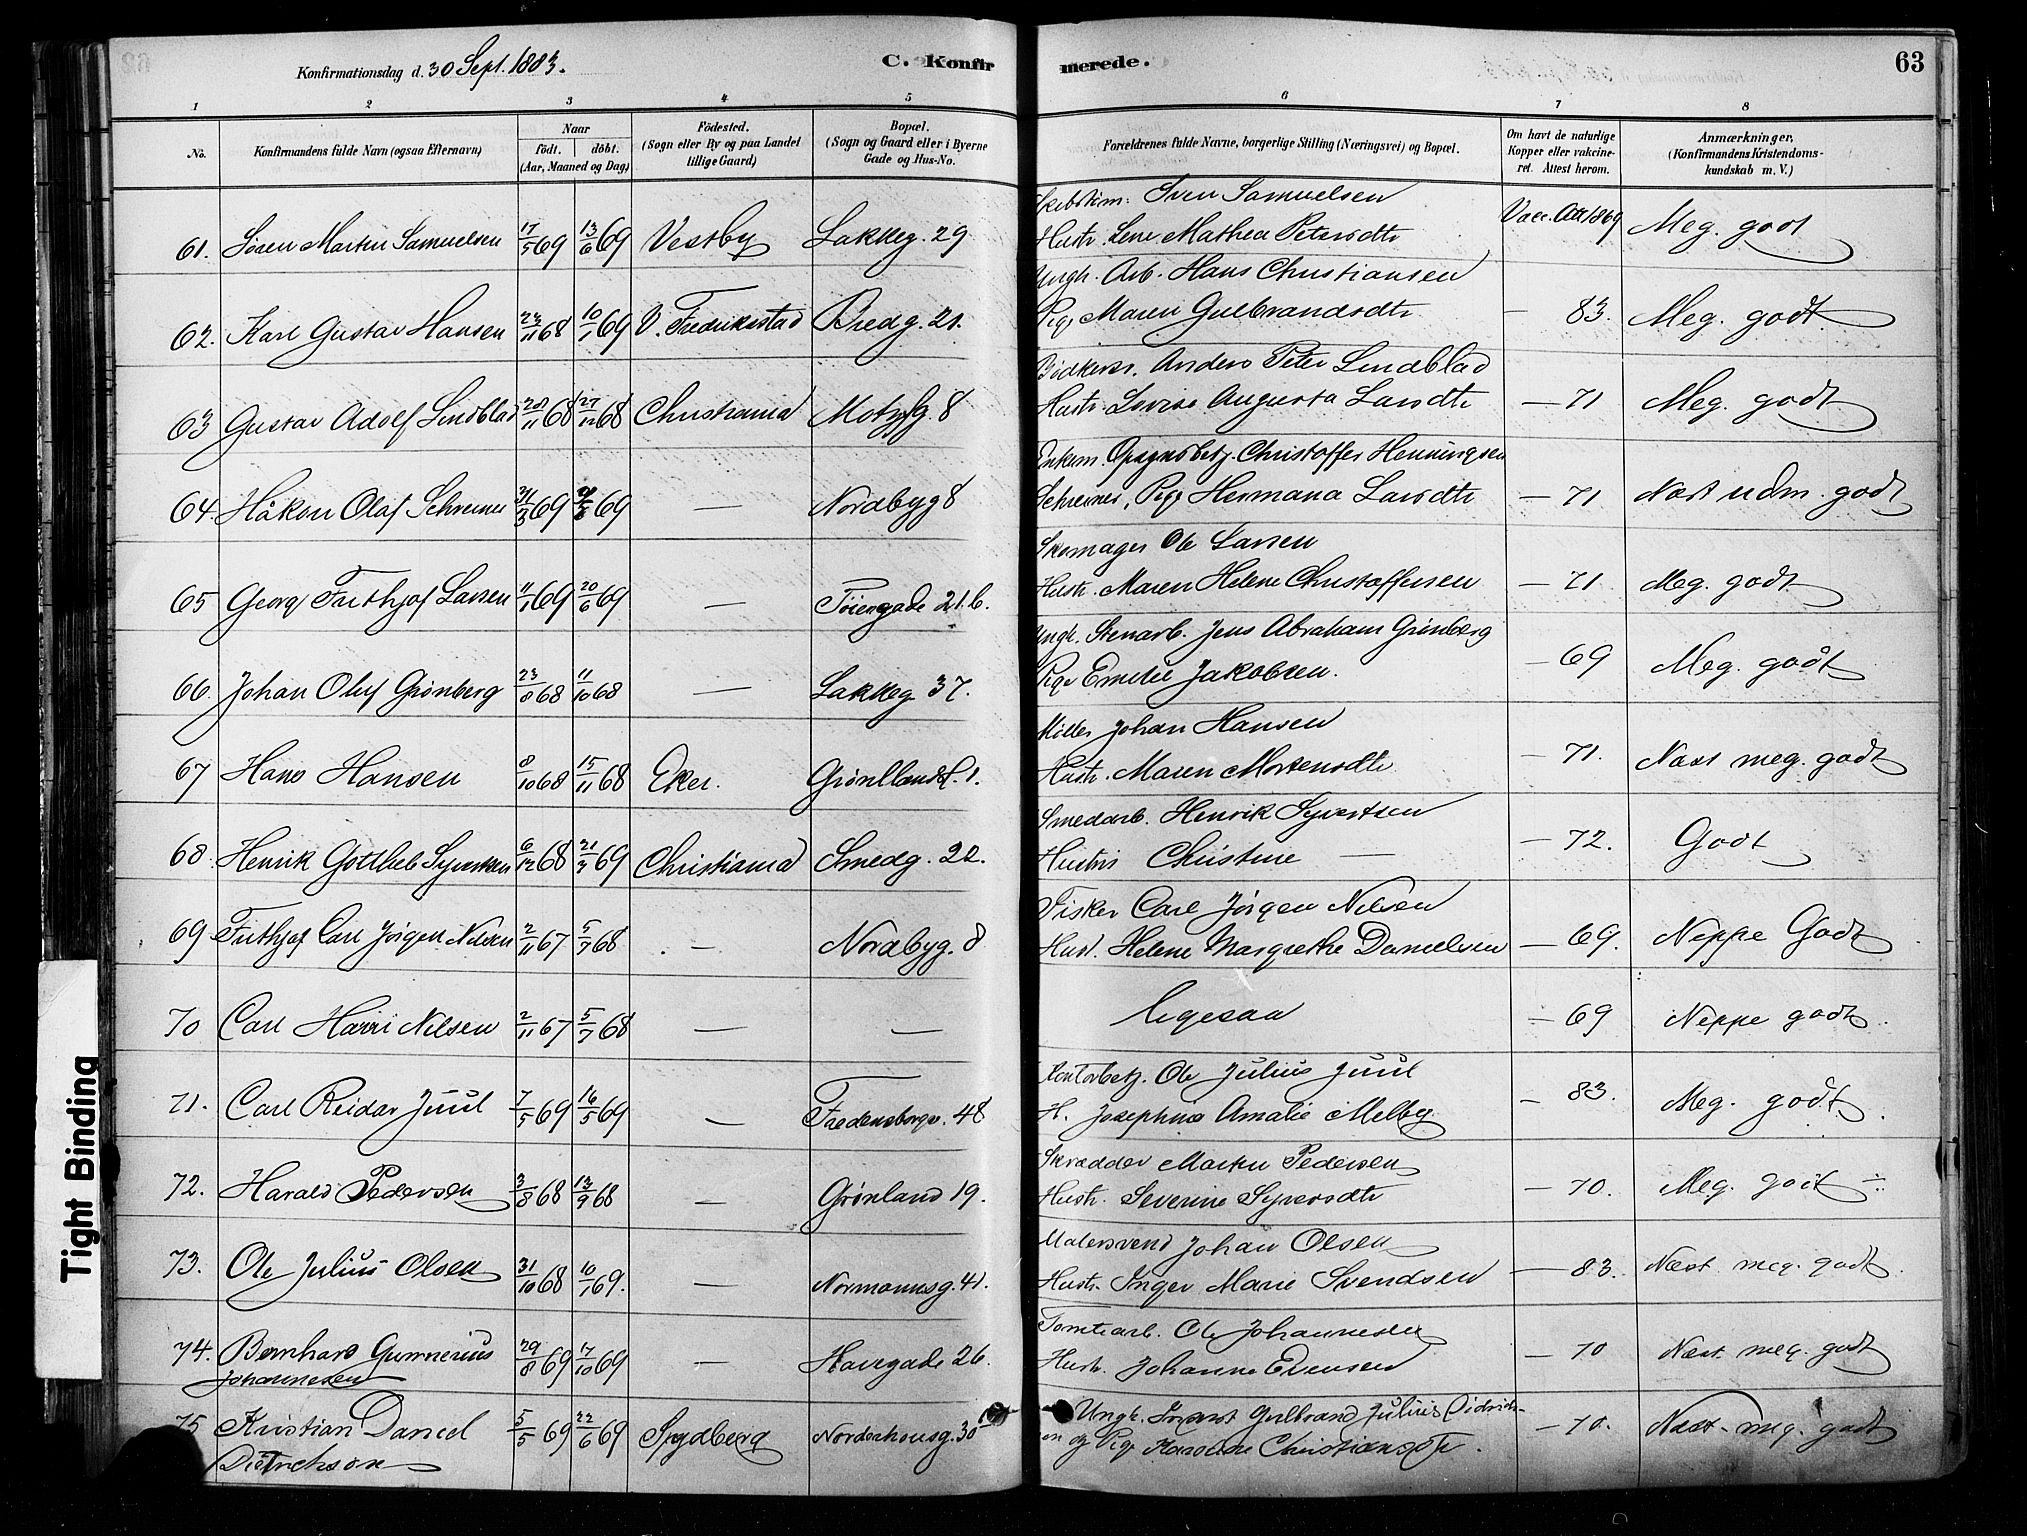 Konfirmationsdag d. 30 Sept. 1883.
C. Konfirmerede.
63
1 2 3 4 5 6 7 8
No.
Konfirmandens fulde Navn (ogsaa Efternavn)
Naar
födt. döbt.
(Aar, Maaned og Dag)
Födested.
(Sogn eller By og paa Landet
tillige Gaard)
Bopæl.
(Sogn og Gaard eller i Byerne
Gade og Hus-No.
Forældrenes fulde Navne, borgerlige Stilling (Næringsvei) og Bopæl.
Om havt de naturlige
Kopper eller vakcine-
ret. Attest herom.
Anmærkninger.
(Konfirmandens Kristendoms-
kundskab m. V.)
Sven Samuelsen
61. Søren Martin Samuelsen 17/5 69 13/6 69 Vestby Lakkeg. 29 Hustr. Lene Mathea Petersdtr Vacc. Att 1869 Meg. godt
Ungk. Arb. Hans Christiansen
62. Karl Gustav Hansen 23/11 68 10/1 69 V. Fredrikstad Bredg. 21. Pige Maren Gulbrandsdtr — 83. Meg. godt.
Bødkersv. Anders Peter Lindblad
63 Gustav Adolf Lindblad 20/11 68 27/12 68 Christiania Motzfg. 8 Hustr. Lovise Augusta Larsdtr — 71 Meg. godt
Enkem. Opsynsbetj. Christoffer Henningsen
64. Håkon Olaf Schreiner 31/3 69 69 — Nordbyg 8 Schreiner, Pige Hermana Larsdtr — 71 Næst udm. godt
Skomager Ole Larsen
65 Georg Frithjof Larsen 11/1 69 20/6 69 — Tøiengade 21.b. Hustr. Maren Helene Christoffersen — 71 Meg. godt
Ungk. Stenarb. Jens Abraham Grønberg
66. Johan Oluf Grønberg 23/8 68 11/10 68 — Lakkeg 37. Pige Emilie Jakobsen. — 69 Meg. godt
Møller Johan Hansen
67 Hans Hansen 8/10 68 15/11 68 Eker. Grønlands. 1. Hustr. Maren Mortensdtr — 71. Næst meg. godt
Smedarb. Henrik Syvertsen
68. Henrik Gottlieb Syvertsen 6/12 68 21/3 69 Christiania Smedg. 22. Hustru Christine — — 72. Godt
Fisker Carl Jørgen Nilsen
69. Frithjof Carl Jørgen Nilsen 2/11 67 5/7 68 — Nordbyg. 8 Hust. Helene Margrethe Danielsen — 69. Neppe Godt
70 Carl Harri Nilsen 2/11 67 5/7 68 — — ligesaa — 69 Neppe godt.
Kontorbetj. Ole Julius Juul
71. Carl Reidar Juul 7/5 69 16/5 69 — Fredensborgv. 48 H. Josephine Amalie Melby — 83. Meg. godt.
Skrædder Martin Pedersen
72. Harald Pedersen 3/8 68 13/9 68 — Grønland 19. Hustr. Severine Syversdtr — 70. Meg. godt ÷
Malersvend Johan Olsen
73. Ole Julius Olsen 31/10 68 10/1 69. — Normannsg. 41. Hustr. Inger Marie Svendsen — 83. Næst meg. godt.
Tomtearb. Ole Johannesen
74. Bernhard Gunnerius 29/8 69 17/10 69 — Havegade 26. Hustr. Johanne Evensen — 70 Næst meg. godt
Johannesen
Ungk. Gulbrand Julius Didrich-
75 Kristian Daniel 5/5 69 22/6 69 Spydberg Norderhousg. 30 sen og Pige Karoline Christiansdtr. — 70. Næst meg. godt
Dietrichson
Tight Binding